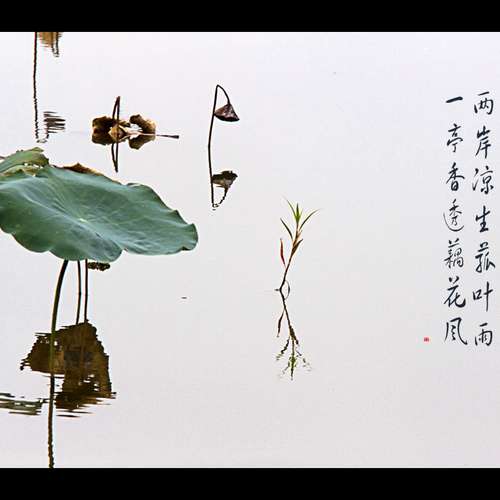 两岸凉生菰叶雨
一亭香透藕花风